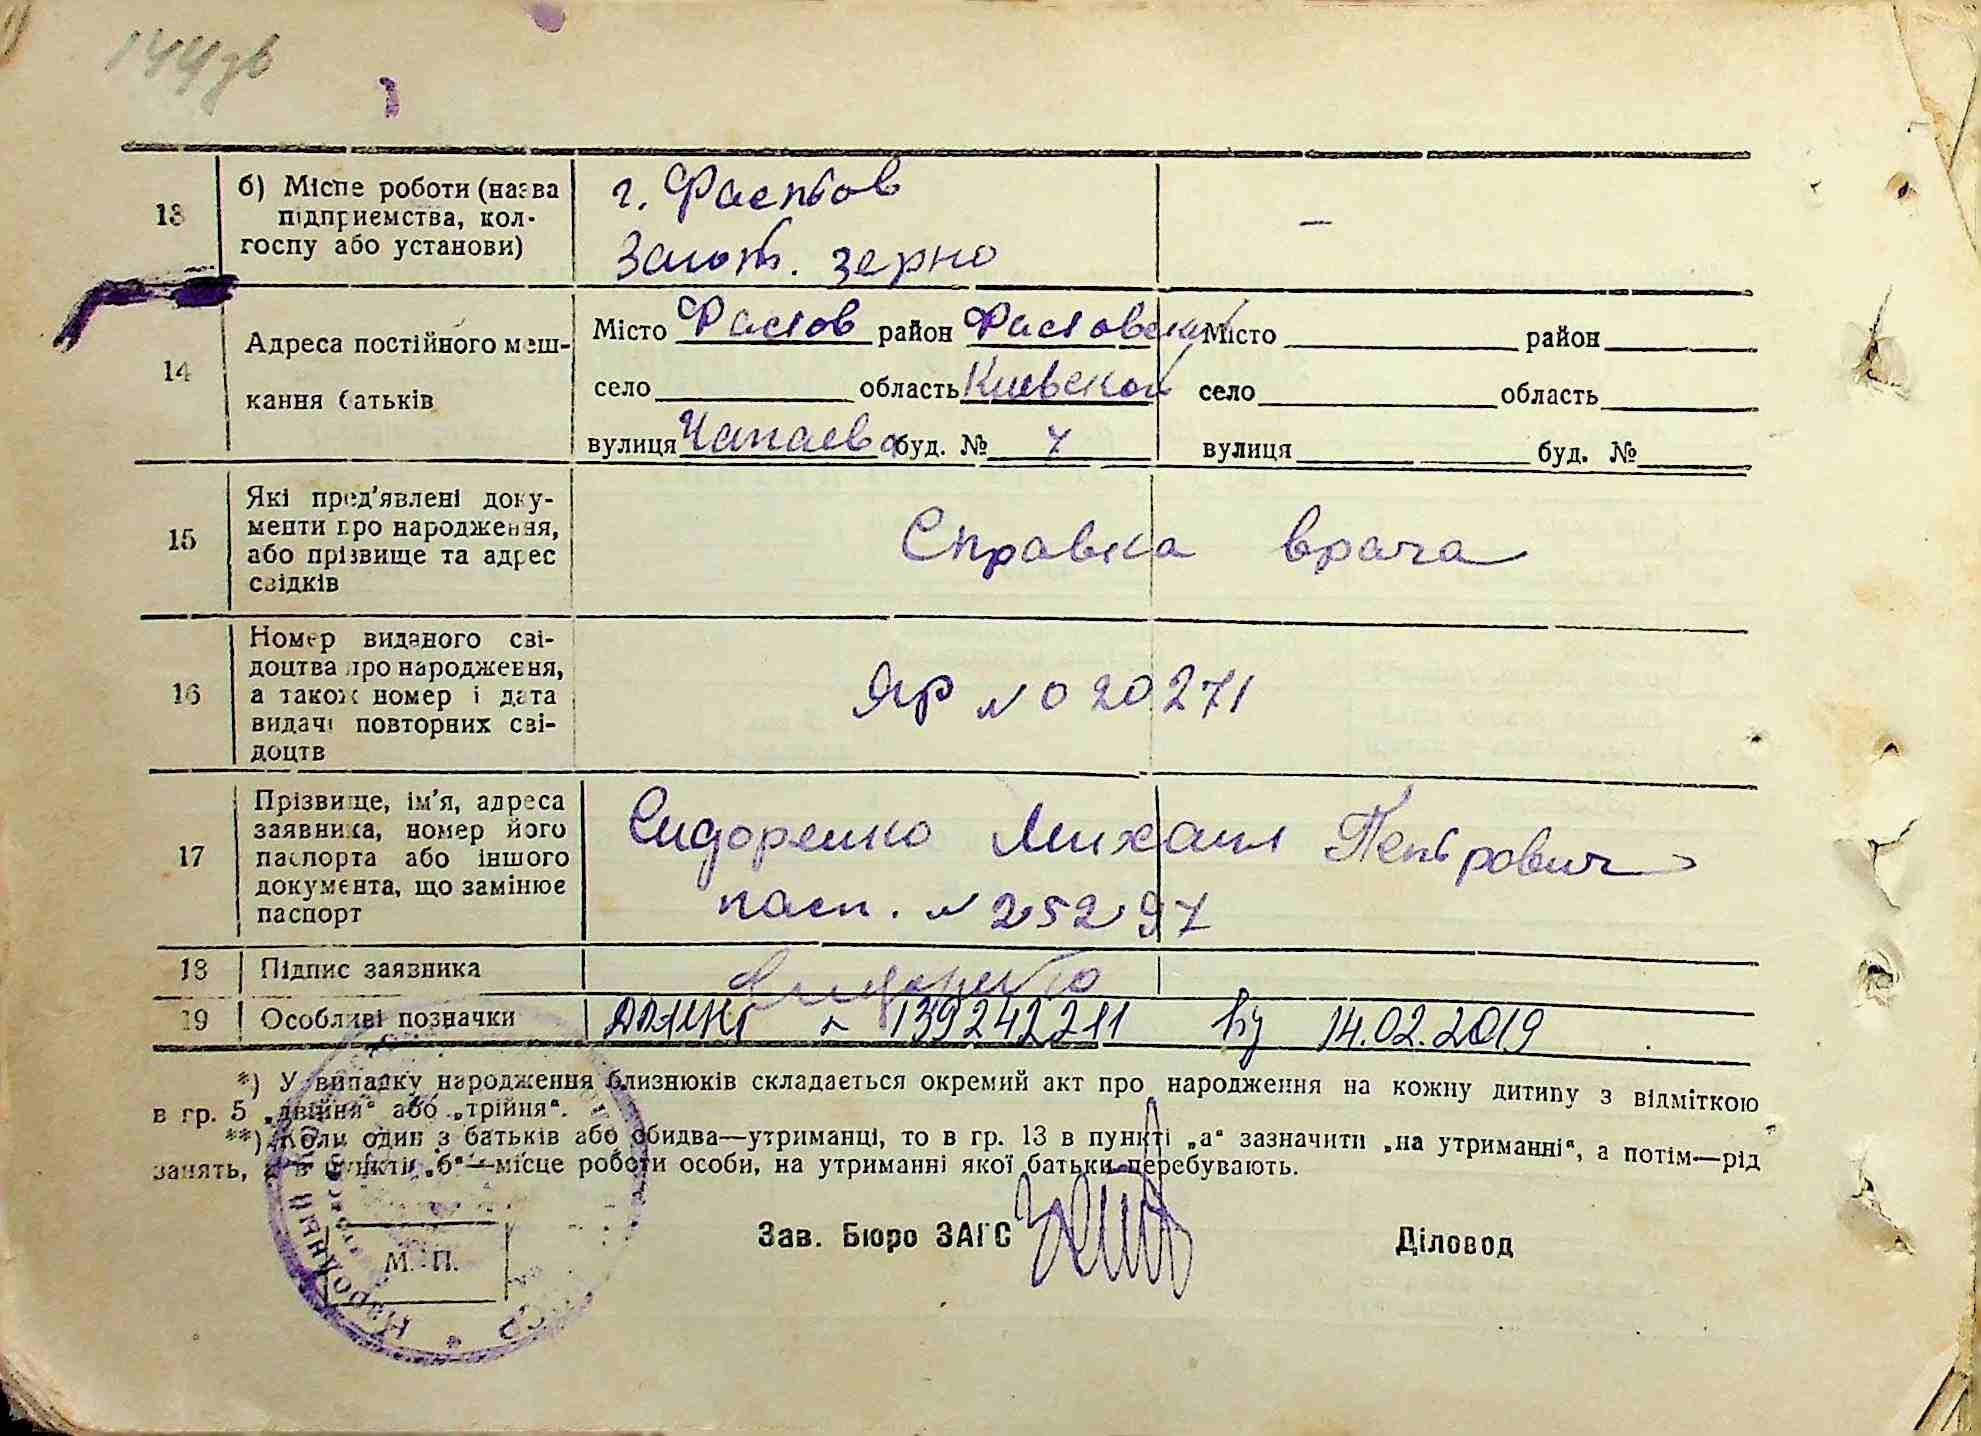 144зв
13
б) Місце роботи (назва
підприємства, кол-
госпу або установи)
г. Фастов
Загот. зерно
–
14
Адреса постійного меш-
кання батьків
Місто Фастов район Фастовский
село область Киевской
вулиця Чапаева буд. № 7
Місто район
село область
вулиця буд. №
15
Які пред'явлені доку-
менти про народження,
або прізвище та адрес
свідків
Справка врача
16
Номер виданого сві-
доцтва про народження,
а також номер і дата
видачі повторних сві-
доцтв
ЯР № 020271
17
Прізвище, ім'я, адреса
заявника, номер його
паспорта або іншого
документа, що замінює
паспорт
Сидоренко Михаил Петрович
пасп. № 25297
18
Підпис заявника
Сидоренко
19
Особливі позначки
№ 139242211 від 14.02.2019
*) У випадку народження близнюків складається окремий акт про народження на кожну дитину з відміткою
в гр. 5 „двійня“ або „трійня“.
**) Коли один з батьків або обидва—утриманці, то в гр. 13 в пункті „а“ зазначити „на утриманні“, а потім—рід
занять, а в пункті „б“—місце роботи особи, на утриманні якої батьки перебувають.
М. П.
Зав. Бюро ЗАГС
Діловод